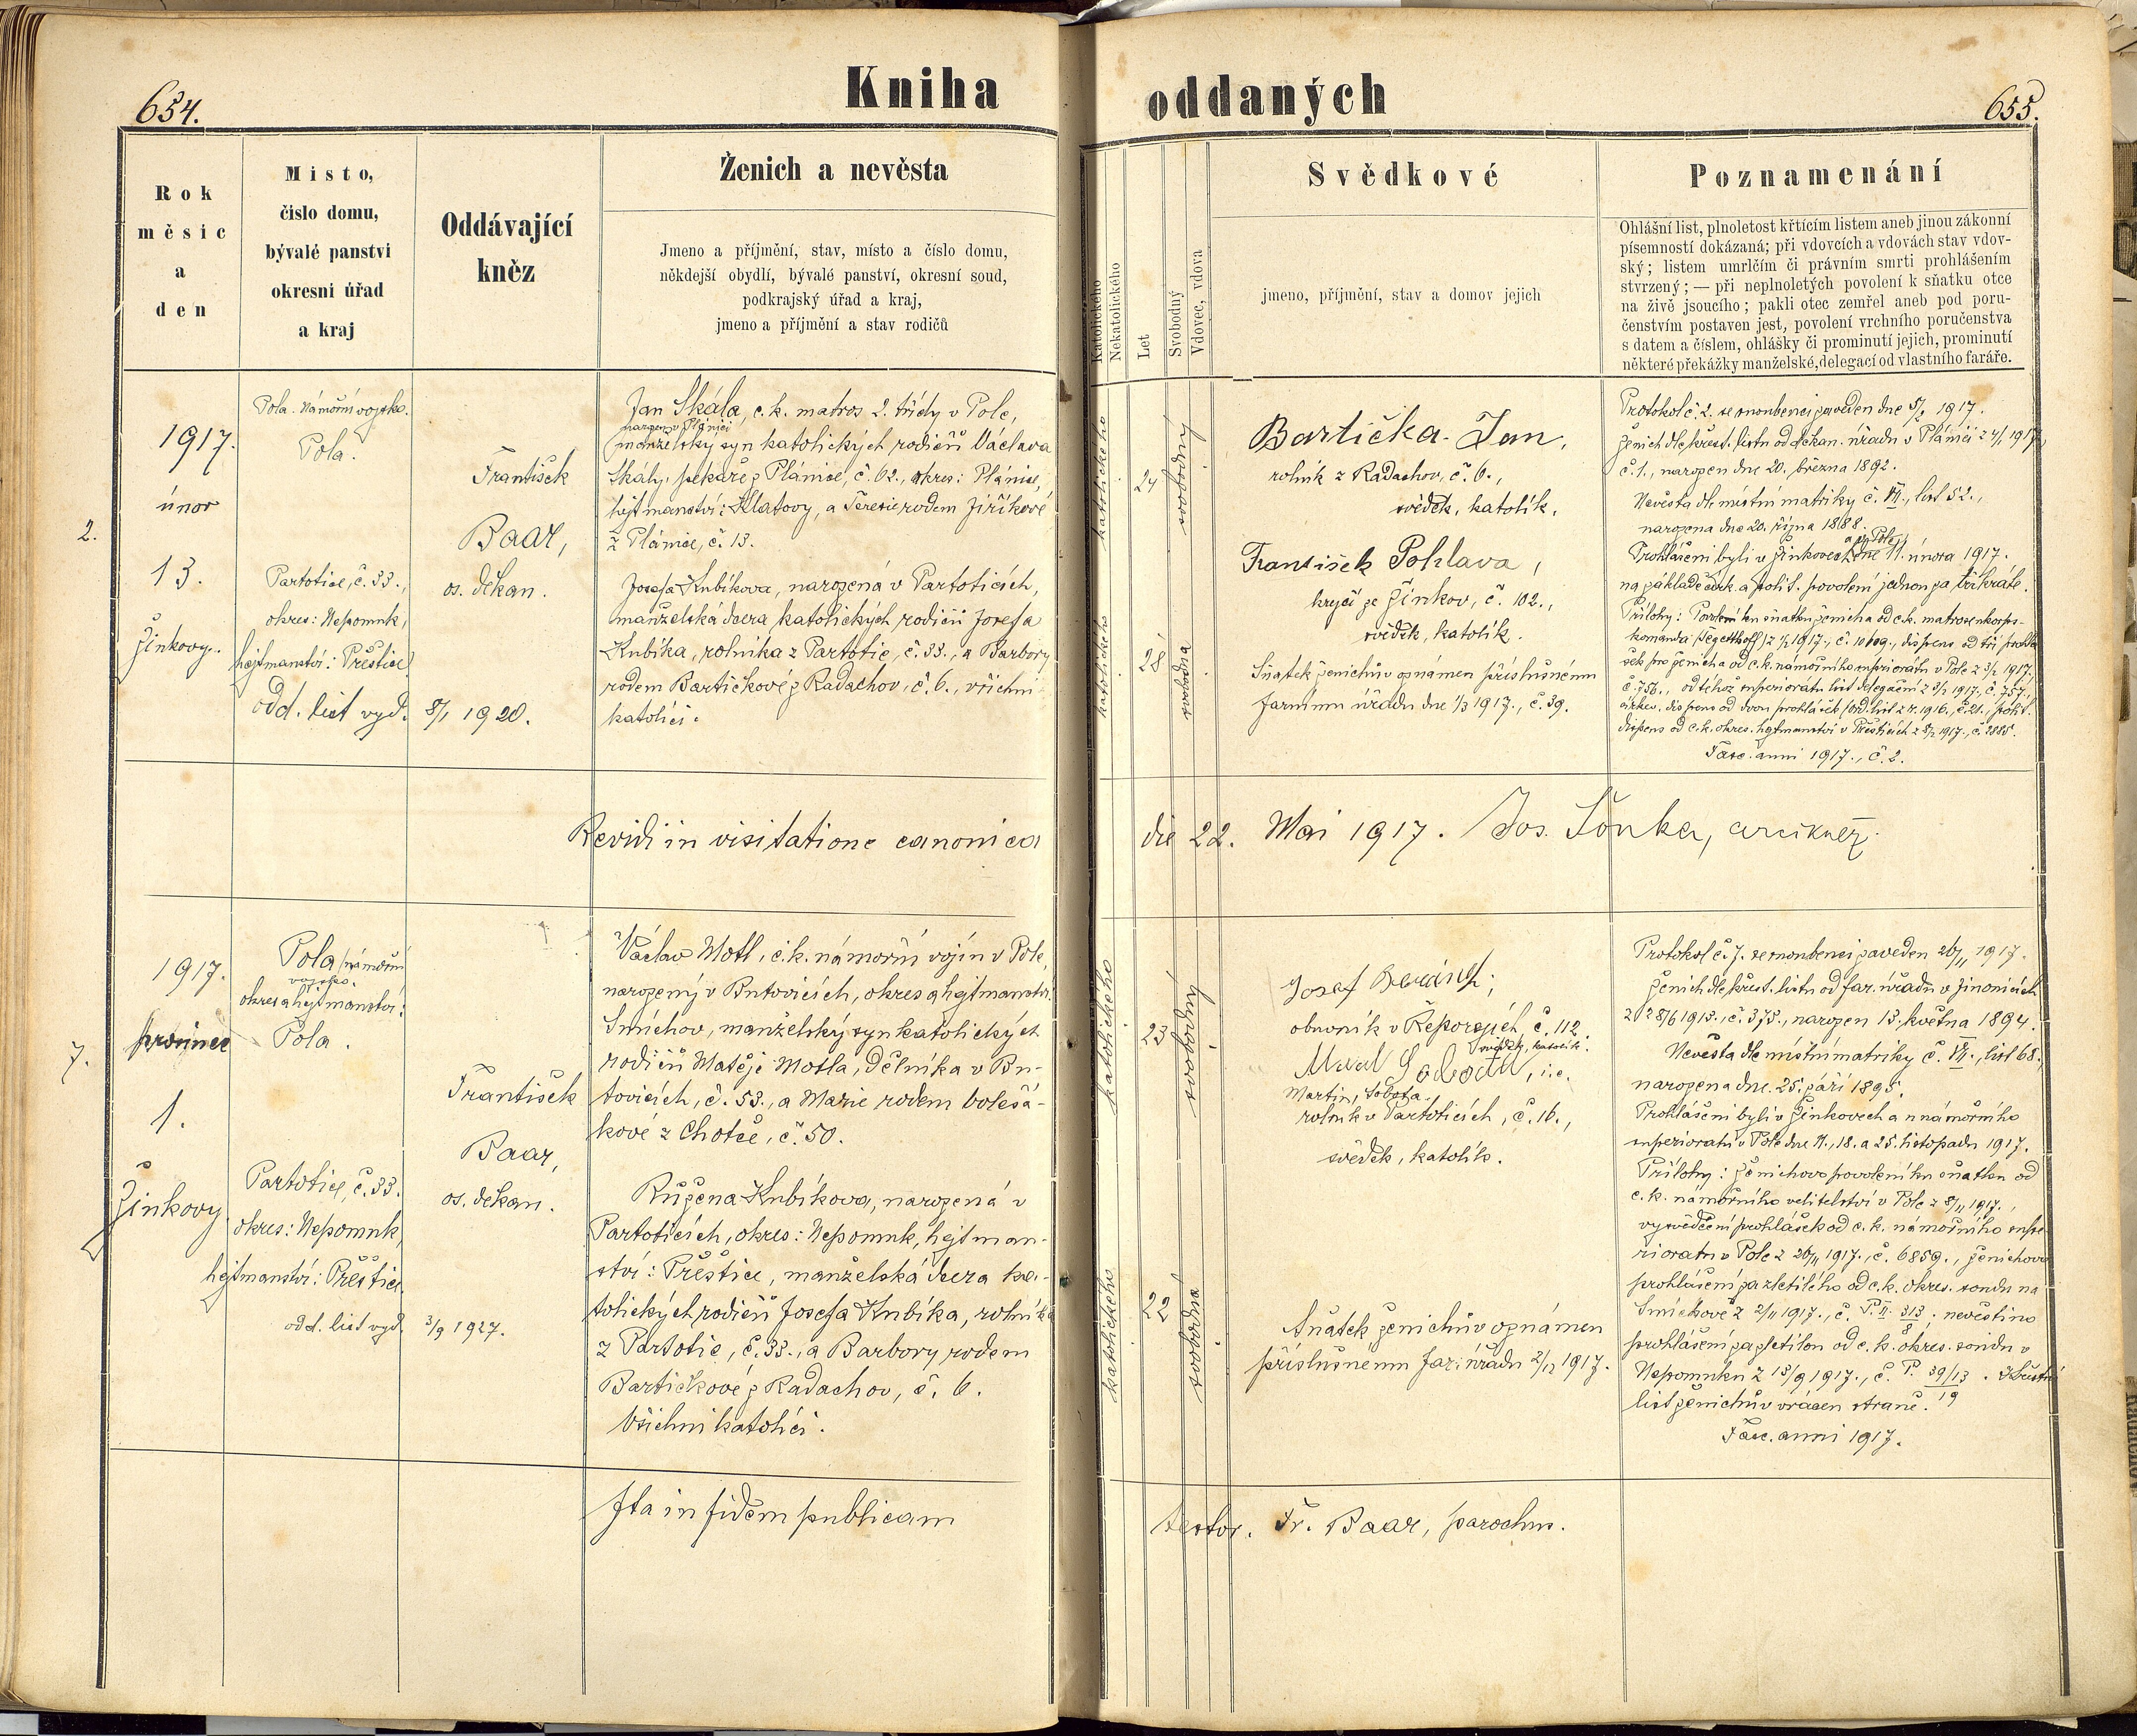 654.
Kniha
oddaných
655.
Rok
měsíc
a
den
Místo,
číslo domu,
bývalé panství
okresní úřad
a kraj
Oddávající
kněz
Ženich a nevěsta
Jmeno a příjmění, stav, místo a číslo domu,
někdejší obydlí, bývalé panství, okresní soud,
podkrajský úřad a kraj,
jmeno a příjmění a stav rodičů
Katolického
Nekatolického
Let
Svobodný
Vdovec, vdova
Svědkové
jmeno, příjmění, stav a domov jejich
Poznamenání
Ohlášní list, plnoletost křtícím listem aneb jinou zákonní
písemností dokázaná; při vdovcích a vdovách stav vdov-
ský; listem umrlčím či právním smrti prohlášením
stvrzený; — při neplnoletých povolení k sňatku otce
na živě jsoucího; pakli otec zemřel aneb pod poru-
čenstvím postaven jest, povolení vrchního poručenstva
s datem a číslem, ohlášky či prominutí jejich, prominutí
některé překážky manželské, delegací od vlastního faráře.
2.
1917.
únor
13.
Žinkovy.
Pola. Námořní vojsko.
Pola.
Partotice, č. 33.,
okres: Nepomuk,
hejtmanství: Přeštice
odd. list vyd. 8/1 1920.
František
Baar,
os. děkan.
Jan Skála, c. k. matros 2. třídy v Pole,
narozen v Plánici
manželský syn katolických rodičů Václava
Skály, pekaře z Plánice, č. 62., okres: Plánice,
hejtmanství: Klatovy, a Terezie rodem Jiříkové
z Plánice, č. 13.
Josefa Kubíkova, narozená v Partoticích,
manželská dcera katolických rodičů Josefa
Kubíka, rolníka z Partotic, č. 33., a Barbory
rodem Bartičkové z Radachov, č. 6., všichni
katolíci.
katolického
24
svobodný
katolického
28
svobodna
Bartička Jan,
rolník z Radachov, č. 6.,
svědek, katolík.
František Pohlava,
krejčí ze Žinkov, č. 102.,
svědek, katolík.
Sňatek ženichův oznámen příslušnému
farnímu úřadu dne 1/3 1917., č. 39.
Protokol č. 2. se snoubenci zaveden dne 5/2 1917.
Ženich dle křest. listu od děkan. úřadu v Plánici z 4/1 1917,
č. 1., narozen dne 20. března 1892.
Nevěsta dle místní matriky č. VII., list 52.,
narozena dne 20. října 1888.
a v Pole
Prohlášeni byli v Žinkovech dne 11. února 1917.
na základě církv. a polit. povolení jednou za třikráte.
Přílohy: Povolení ku sňatku ženicha od c. k. matrosenkorps-
č. 756., od téhož superiorátu list delegační z 3/2 1917., č. 757.,
církev. dispens od dvou prohlášek (ord. list z r. 1916., č. 21., polit.
dispens od c. k. okres. hejtmanství v Přešticích z 8/2 1917., č. 2885.
Fasc. anni 1917., č. 2.
Revidi in visitatione canonica die 22. Mai 1917. Jos. Šonka, arcikněz.
7.
1917.
prosinec
1.
Žinkovy
Pola (námořní
vojsko.
okres a hejtmanství:
Pola.
Partotice, č. 33.
okres: Nepomuk,
hejtmanství: Přeštice.
odd. list vyd. 3/9 1927.
František
Baar,
os. děkan.
Václav Motl, c. k. námořní vojín v Pole,
narozený v Butovicích, okres a hejtmanství:
Smíchov, manželský syn katolických
rodičů Matěje Motla, dělníka v Bu-
tovicích, č. 53., a Marie rodem Bolesá-
kové z Chotče, č. 50.
Růžena Kubíkova, narozená v
Partoticích, okres: Nepomuk, hejtman-
ství: Přeštice, manželská dcera ka-
tolických rodičů Josefa Kubíka, rolníka
z Partotic, č. 33., a Barbory rodem
Bartičkové z Radachov, č. 6.
Všichni katolíci.
katolického
23
svobodný
katolického
22
svobodná
Josef
obuvník v Řeporyjích, č. 112.
svědek, katolík.
Sobota, i. e.
Martin Sobota,
rolník v Partoticích, č. 16.,
svědek, katolík.
Sňatek ženichův oznámen
příslušnému far. úřadu 2/12 1917.
Protokol č. 7. se snoubenci zaveden 26/11 1917.
Ženich dle křest. listu od far. úřadu v Jinonicích
z 28/6 1913., č. 375., narozen 13. května 1894.
Nevěsta dle místní matriky č. VII., list 68.,
narozena dne 25. září 1895.
Prohlášeni byli v Žinkovech a u námořního
superiorátu v Pole dne 11., 18. a 25. listopadu 1917.
Přílohy: Ženichovo povolení ku sňatku od
c. k. námořního velitelství v Pole z 8/11 1917.,
vysvědčení prohlášek od c. k. námořního supe-
riorátu v Pole z 26/11 1917., č. 6859., ženichovo
prohlášení za zletilého od c. k. okres. soudu na
Smíchově z 2/11 1917., č. P. II. 313/8; nevěstino
prohlášení za zletilou od c. k. okres. soudu v
Nepomuku z 13/9 1917., č. P. 39/13/19. Křestní
list ženichův vrácen straně.
Fasc. anni 1917.
Ita in fidem publicam testor. Fr. Baar, parochus.